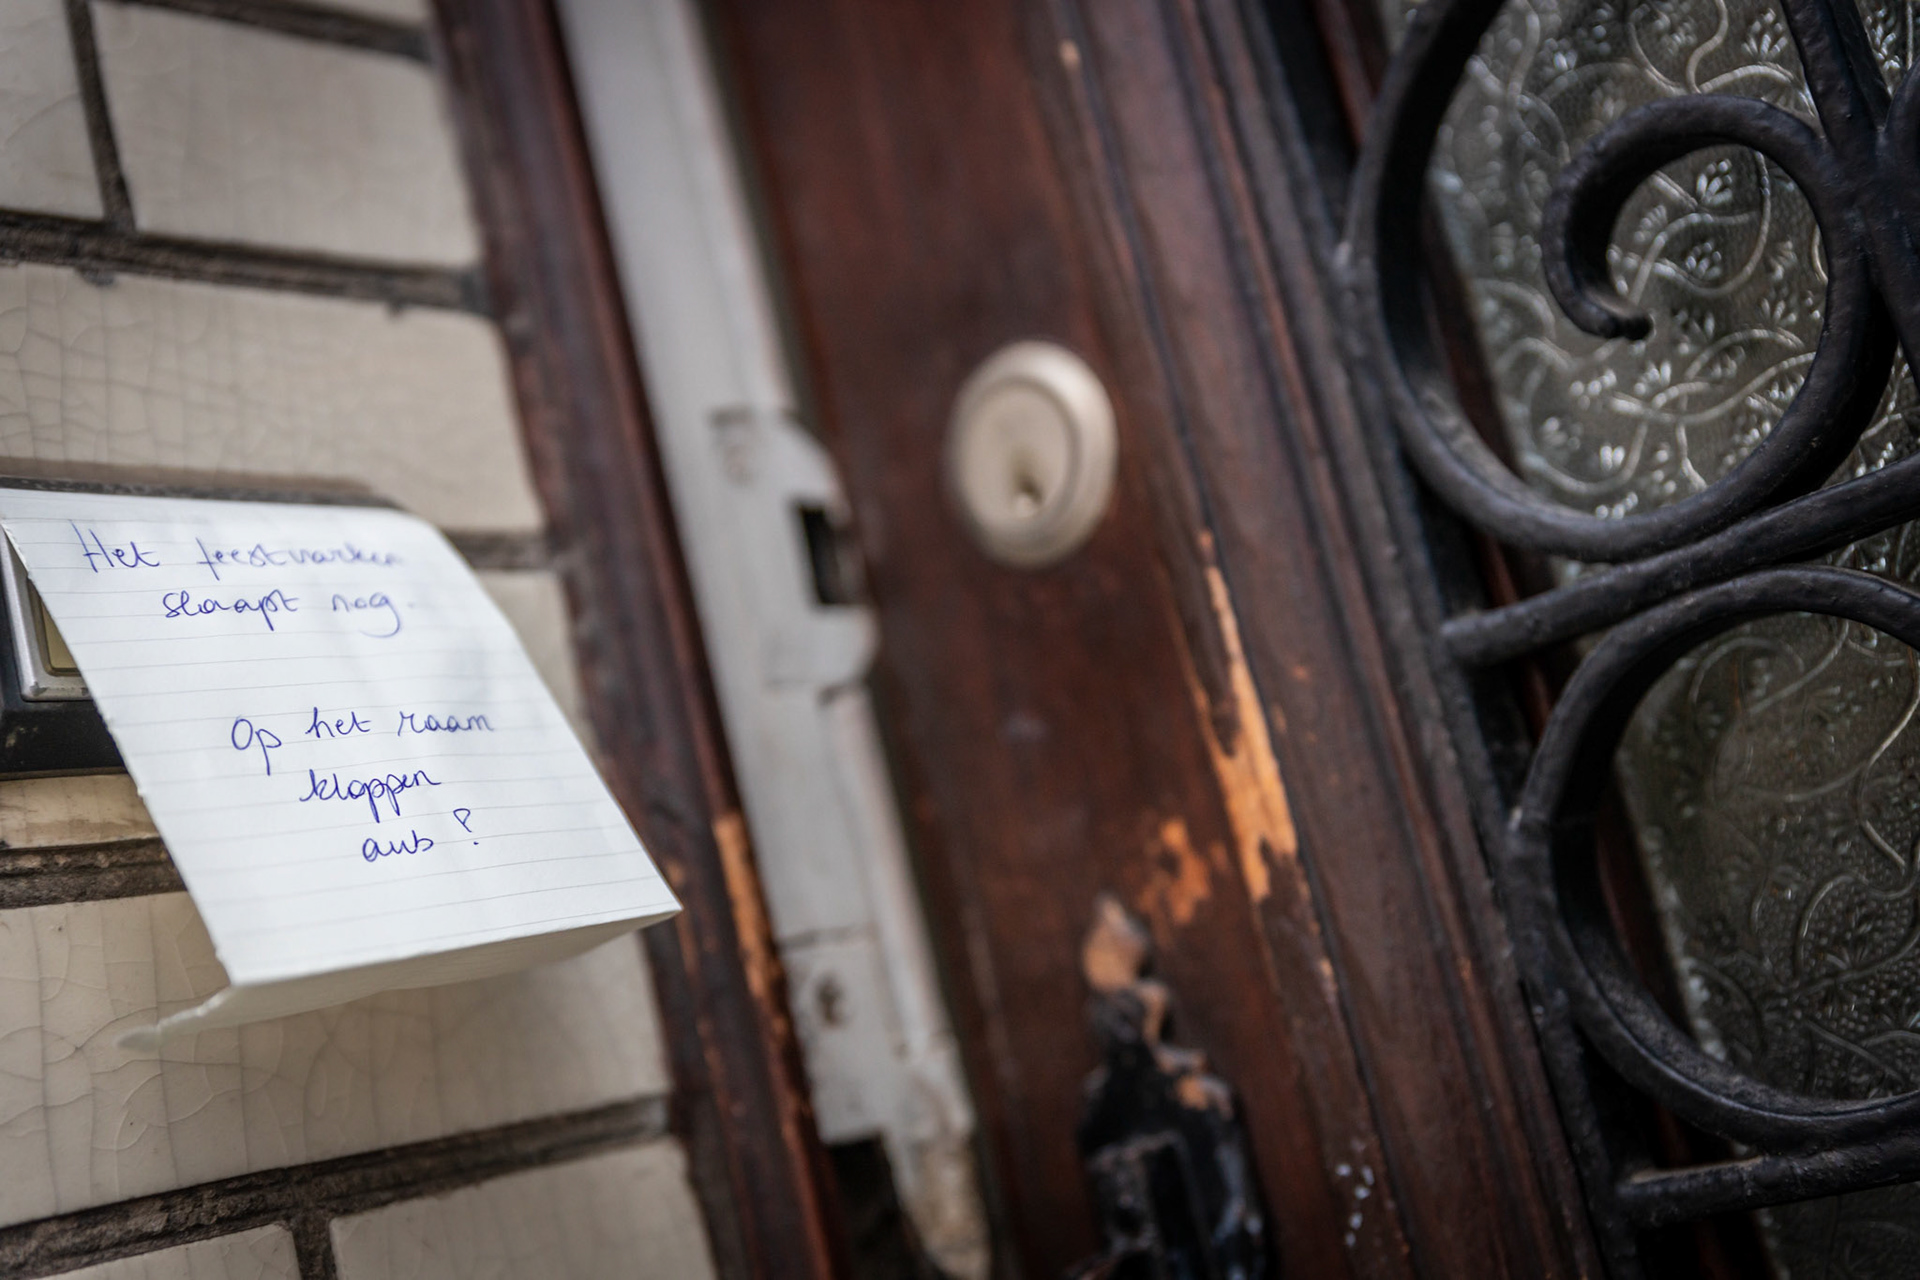 Het feestvarken
slaapt nog.
Op het raam
kloppen
aub ?